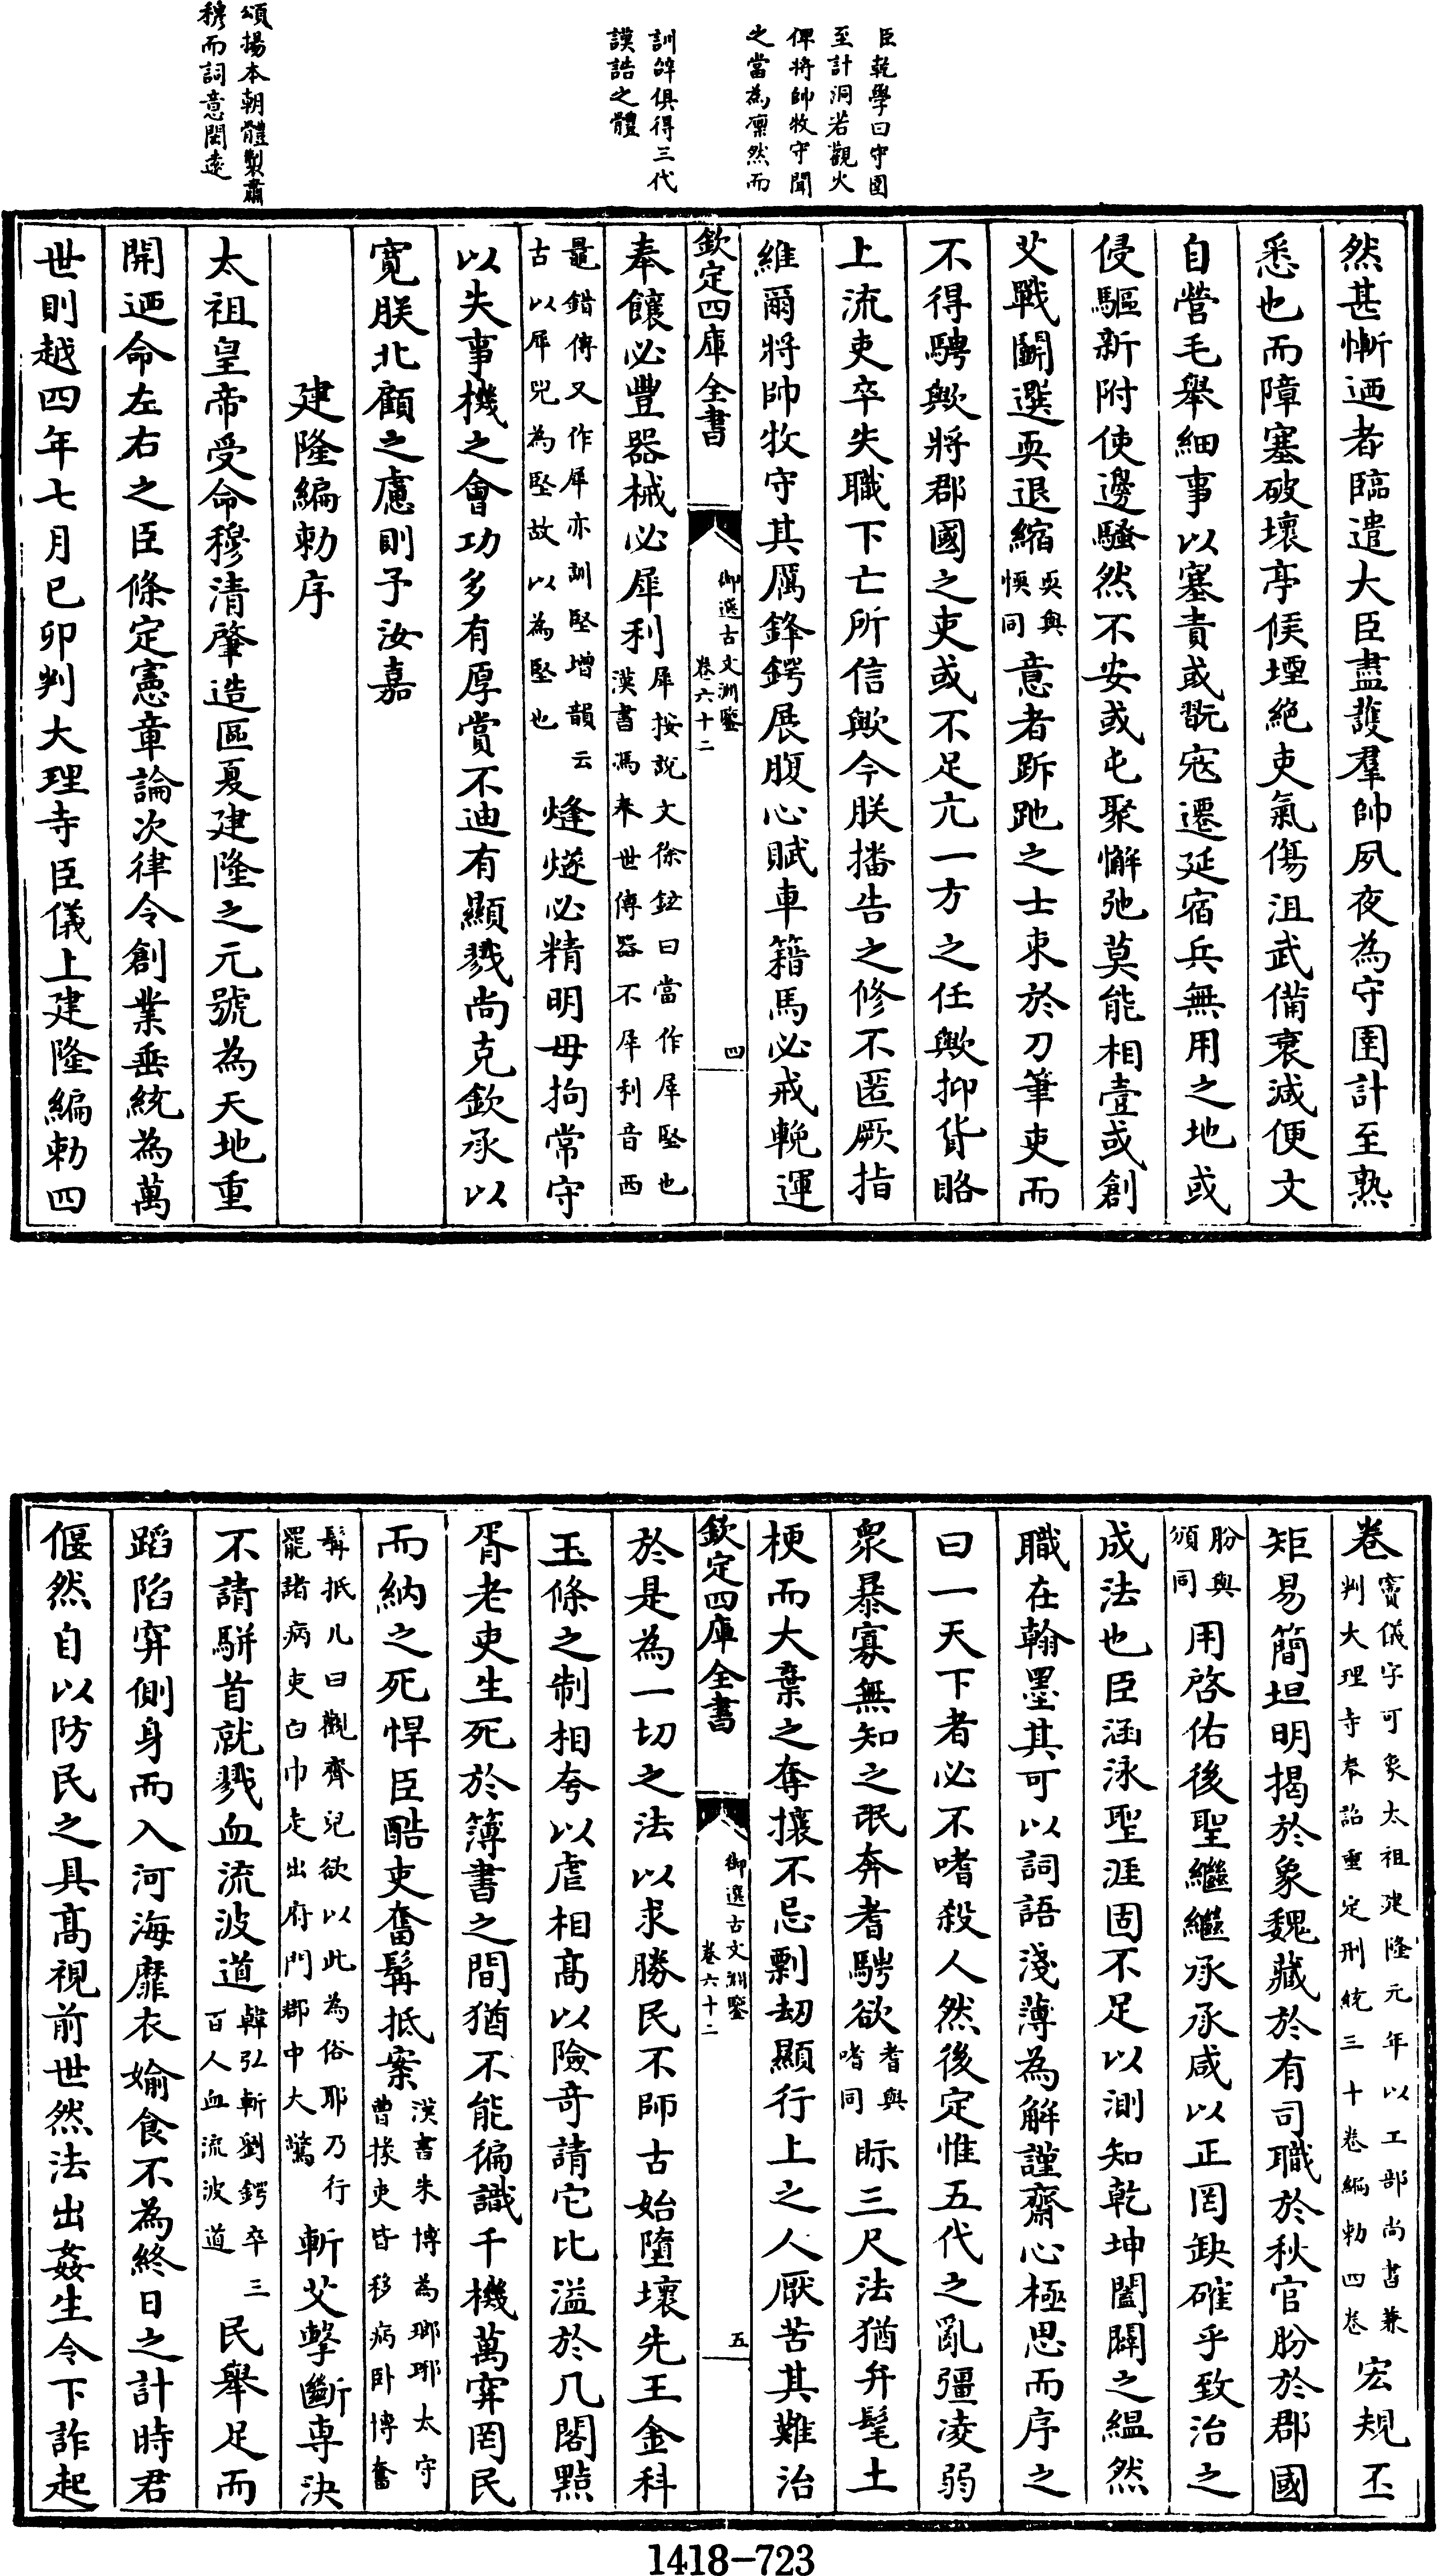 臣乾學曰守圉
至計洞若觀火
俾將帥牧守聞
之當為凛然而
訓辭俱得三代
謨誥之體
頌揚本朝體製肅
穆而詞意閎遠
然甚慚迺者臨遣大臣盡䕶羣帥夙夜為守圉計至熟
悉也而障塞破壞亭𠋫堙絶吏氣傷沮武備衰減便文
自營毛舉細事以塞責或翫寇遷延宿兵無用之地或
侵驅新附使邊騷然不安或屯聚懈弛莫能相壹或創
艾戰鬭選耎退縮耎與愞同意者跅跑之士束於刀筆吏而
不得騁歟將郡國之吏或不足亢一方之任歟抑貨賂
上流吏卒失職下亡所信歟今朕播告之修不匿厥指
維爾將帥牧守其厲鋒鍔展腹心賦車籍馬必戒輓運
欽定四庫全書
御選古文淵鑒
卷六十二
四
奉饟必豐器械必犀利犀按説文徐鉉曰當作犀堅也
漢書馮奉世傳器不犀利音西
鼂錯傳又作犀亦訓堅增韻云
古以犀兕為堅故以為堅也烽燧必精明毋拘常守
以失事機之會功多有厚賞不迪有顯戮尚克欽承以
寛朕北顧之慮則予汝嘉
建隆編勅序
太祖皇帝受命穆清肇造區夏建隆之元號為天地重
開迺命左右之臣條定憲章論次律令創業垂統為萬
世則越四年七月己卯判大理寺臣儀上建隆編勅四
卷竇儀字可象太祖建隆元年以工部尚書兼
判大理寺奉詔重定刑統三十卷編勅四卷宏規丕
矩易簡坦明掲於象魏藏於有司職於秋官肦於郡國
肦與頒同用啓佑後聖繼繼承承咸以正罔缺確乎致治之
成法也臣涵泳聖涯固不足以測知乾坤闔闢之緼然
職在翰墨其可以詞語淺薄為解謹齋心極思而序之
曰一天下者必不嗜殺人然後定惟五代之亂彊凌弱
衆暴寡無知之氓奔耆騁欲耆與嗜同眎三尺法猶弁髦土
梗而大葉之奪攘不忌剽刼顯行上之人厭苦其難治
欽定四庫全書
御選古文淵鑒
卷六十二
五
於是為一切之法以求勝民不師古始墮壞先王金科
玉條之制相夸以虐相髙以險竒請它比溢於几閣㸃
胥老吏生死於簿書之間猶不能徧識千機萬穽罔民
而納之死悍臣酷吏奮髯抵案漢書朱博為瑯琊太守
曹掾吏皆移病卧博奮
髯抵几曰觀齊兒欲以此為俗耶乃行
罷諸病吏白巾走出府門郡中大驚斬艾撃斷專決
不請駢首就戮血流波道韓弘斬劉鍔卒三
百人血流波道民舉足而
蹈陷穽側身而入河海靡衣媮食不為終日之計時君
偃然自以防民之具髙視前世然法出姦生令下詐起
1418-723